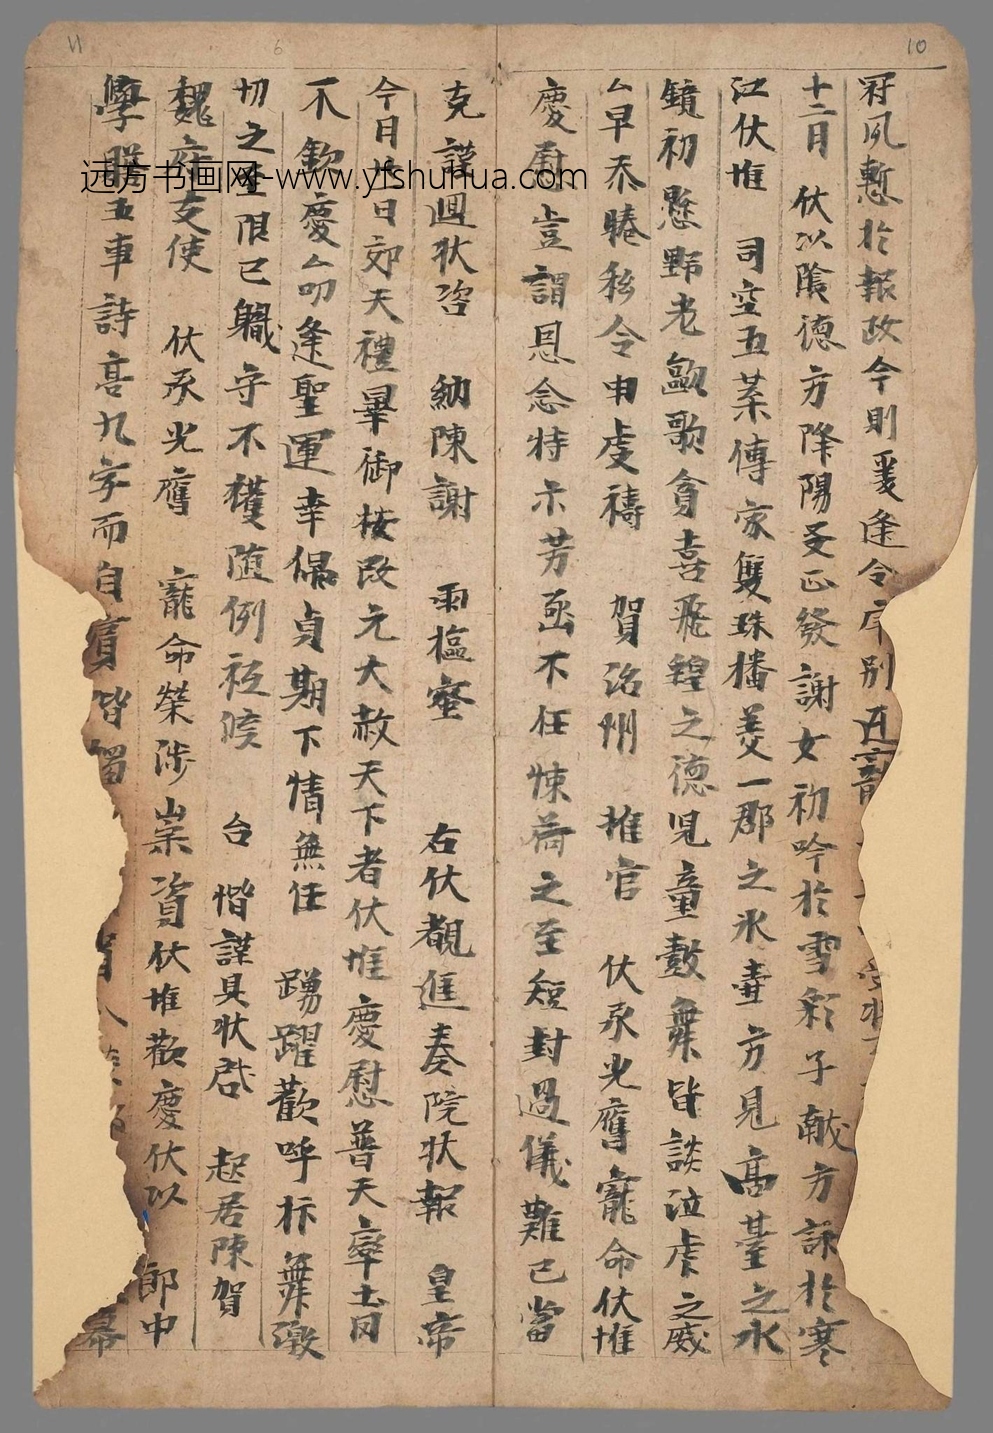 冠夙慙於報政今則爰逢令序別
十二月 伏以陰德方降陽爻正發謝女初吟於雪彩子猷方詠於寒
江伏惟 司空五葉傳家雙珠播美一郡之氷壺方見高臺之水
鏡初懸野老謳歌貪喜飛蝗之德児童鼓舞皆談泣虎之威
厶早忝睠私令申虔禱 賀洺州 推官 伏承光膺寵命伏惟
慶慰豈謂恩念特示芳函不任悚荷之至短封過儀難已當
克謹迴狀咨 納陳謝 兩樞蜜 右伏覩進奏院狀報 皇帝
今日廿日郊天禮畢御按改元大赦天下者伏惟慶慰普天率土罔
不歡慶厶叨逢聖運幸偶貞期下情無任 踴躍歡呼抃舞激
切之至限已軄守不獲随例祗候 台 惛謹具狀啟 起居陳賀
魏府支使 伏承光膺 寵命榮涉崇資伏惟歡慶伏以 郎中
學 五車詩高九字而自 皆 幕
6
10
远方书画网-www.yfshuhua.com